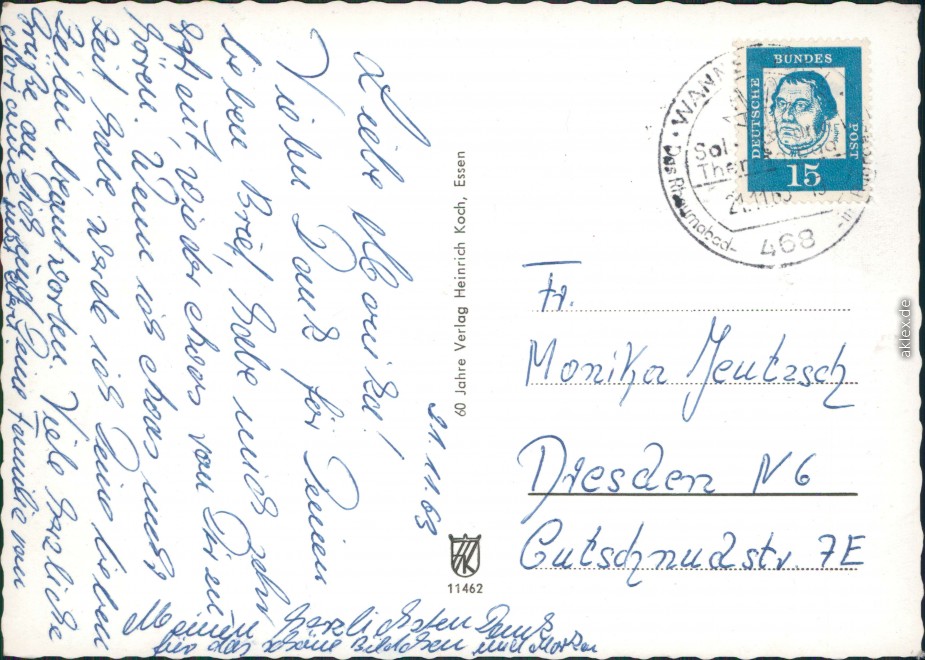 21.11.63
Liebe Monika!
Vielen Dank für Deinen
lieben Brief, habe mich sehr
gefreut, wieder etwas von Dir zu
hören. Wenn ich etwas mehr
Zeit habe, werde ich Deine lieben
Zeilen beantworten. Viele herzliche
Grüße an Dich und Deine Familie von
Meinen herzlichsten Dank
für das schöne Bildchen und Marken
60 Jahre Verlag Heinrich Koch, Essen
11462
DEUTSCHE
BUNDES
POST
15
WANN
Sol
Ther
21.11.63
468
Fr.
Monika Jeutzsch
Dresden N6
Gutschmidstr. 7E
aklex.de